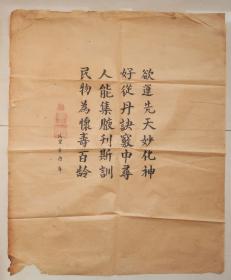 欲運先天妙化神
好從丹訣竅中尋
人能集腋刊斯訓
民物為懷壽百齡